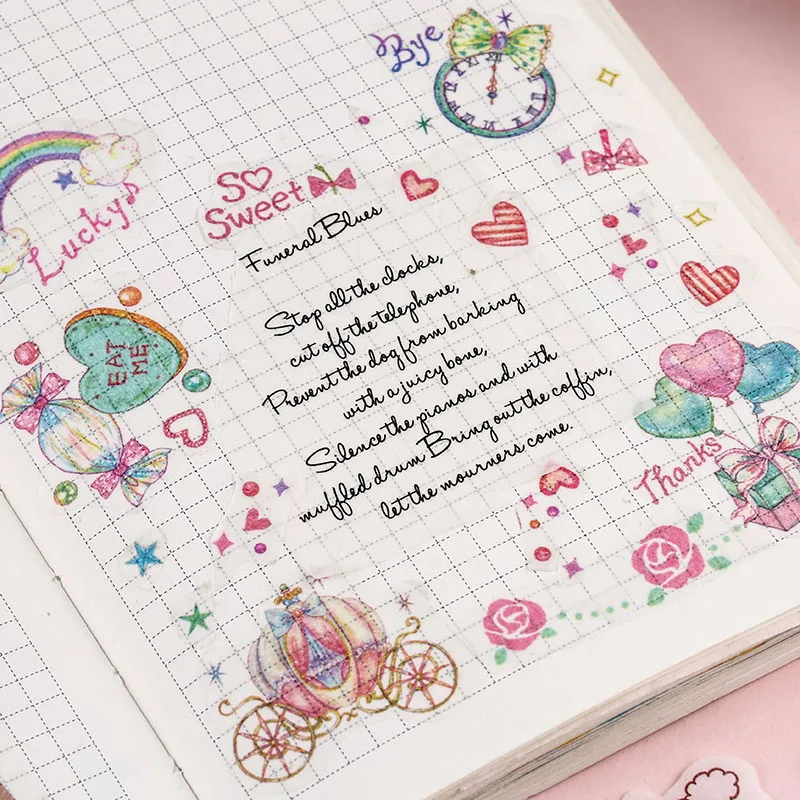 Bye
Lucky
SO
Sweet
Funeral Blues
Stop all the clocks,
cut off the telephone,
Prevent the dog from barking
with a juicy bone,
Silence the pianos and with
muffled drum Bring out the coffin,
let the mourners come.
EAT
ME
Thanks